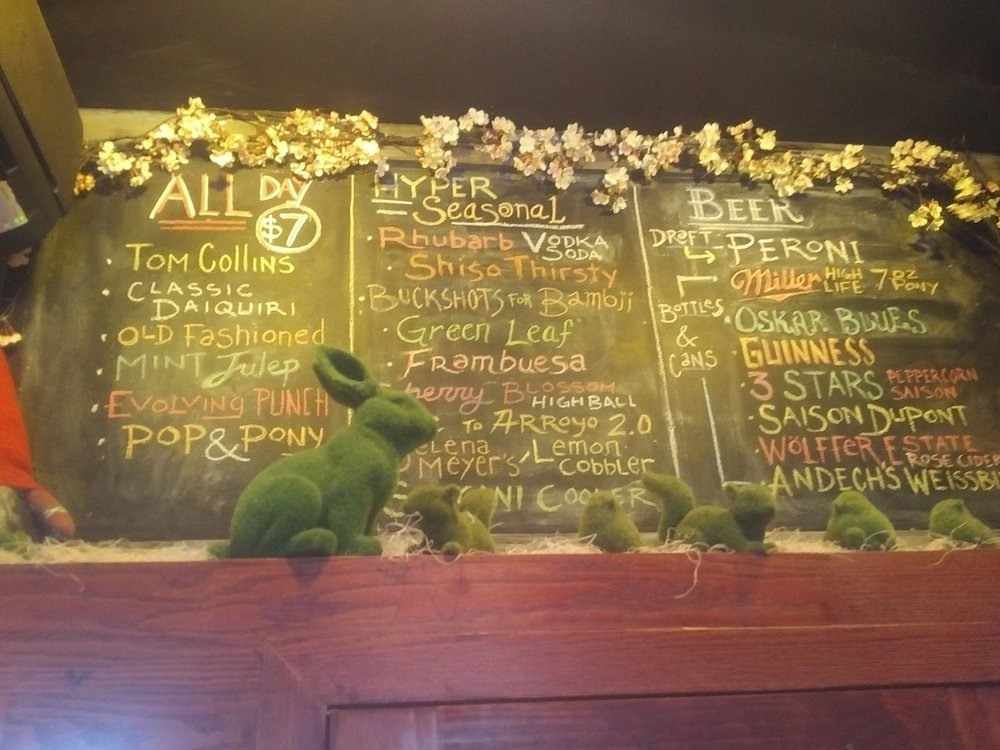 ALL DAY
$7
Tom Collins
Classic
Daiquiri
Old Fashioned
Mint Julep
Evolving Punch
Pop & Pony
Hyper
Seasonal
Rhubarb Vodka Soda
Shiso Thirsty
Buckshots for Bamboji
Green Leaf
Frambuesa
Cherry Blossom
Highball
to Arroyo 2.0
Meyer's Lemon
Cobbler
Cooler
Beer
Draft Peroni
Bottles
&
Cans
Miller High Life 7oz Pony
Oskar Blues
Guinness
3 Stars Peppercorn Saison
Saison Dupont
Wölffer Estate
Rosé Cider
Andech's